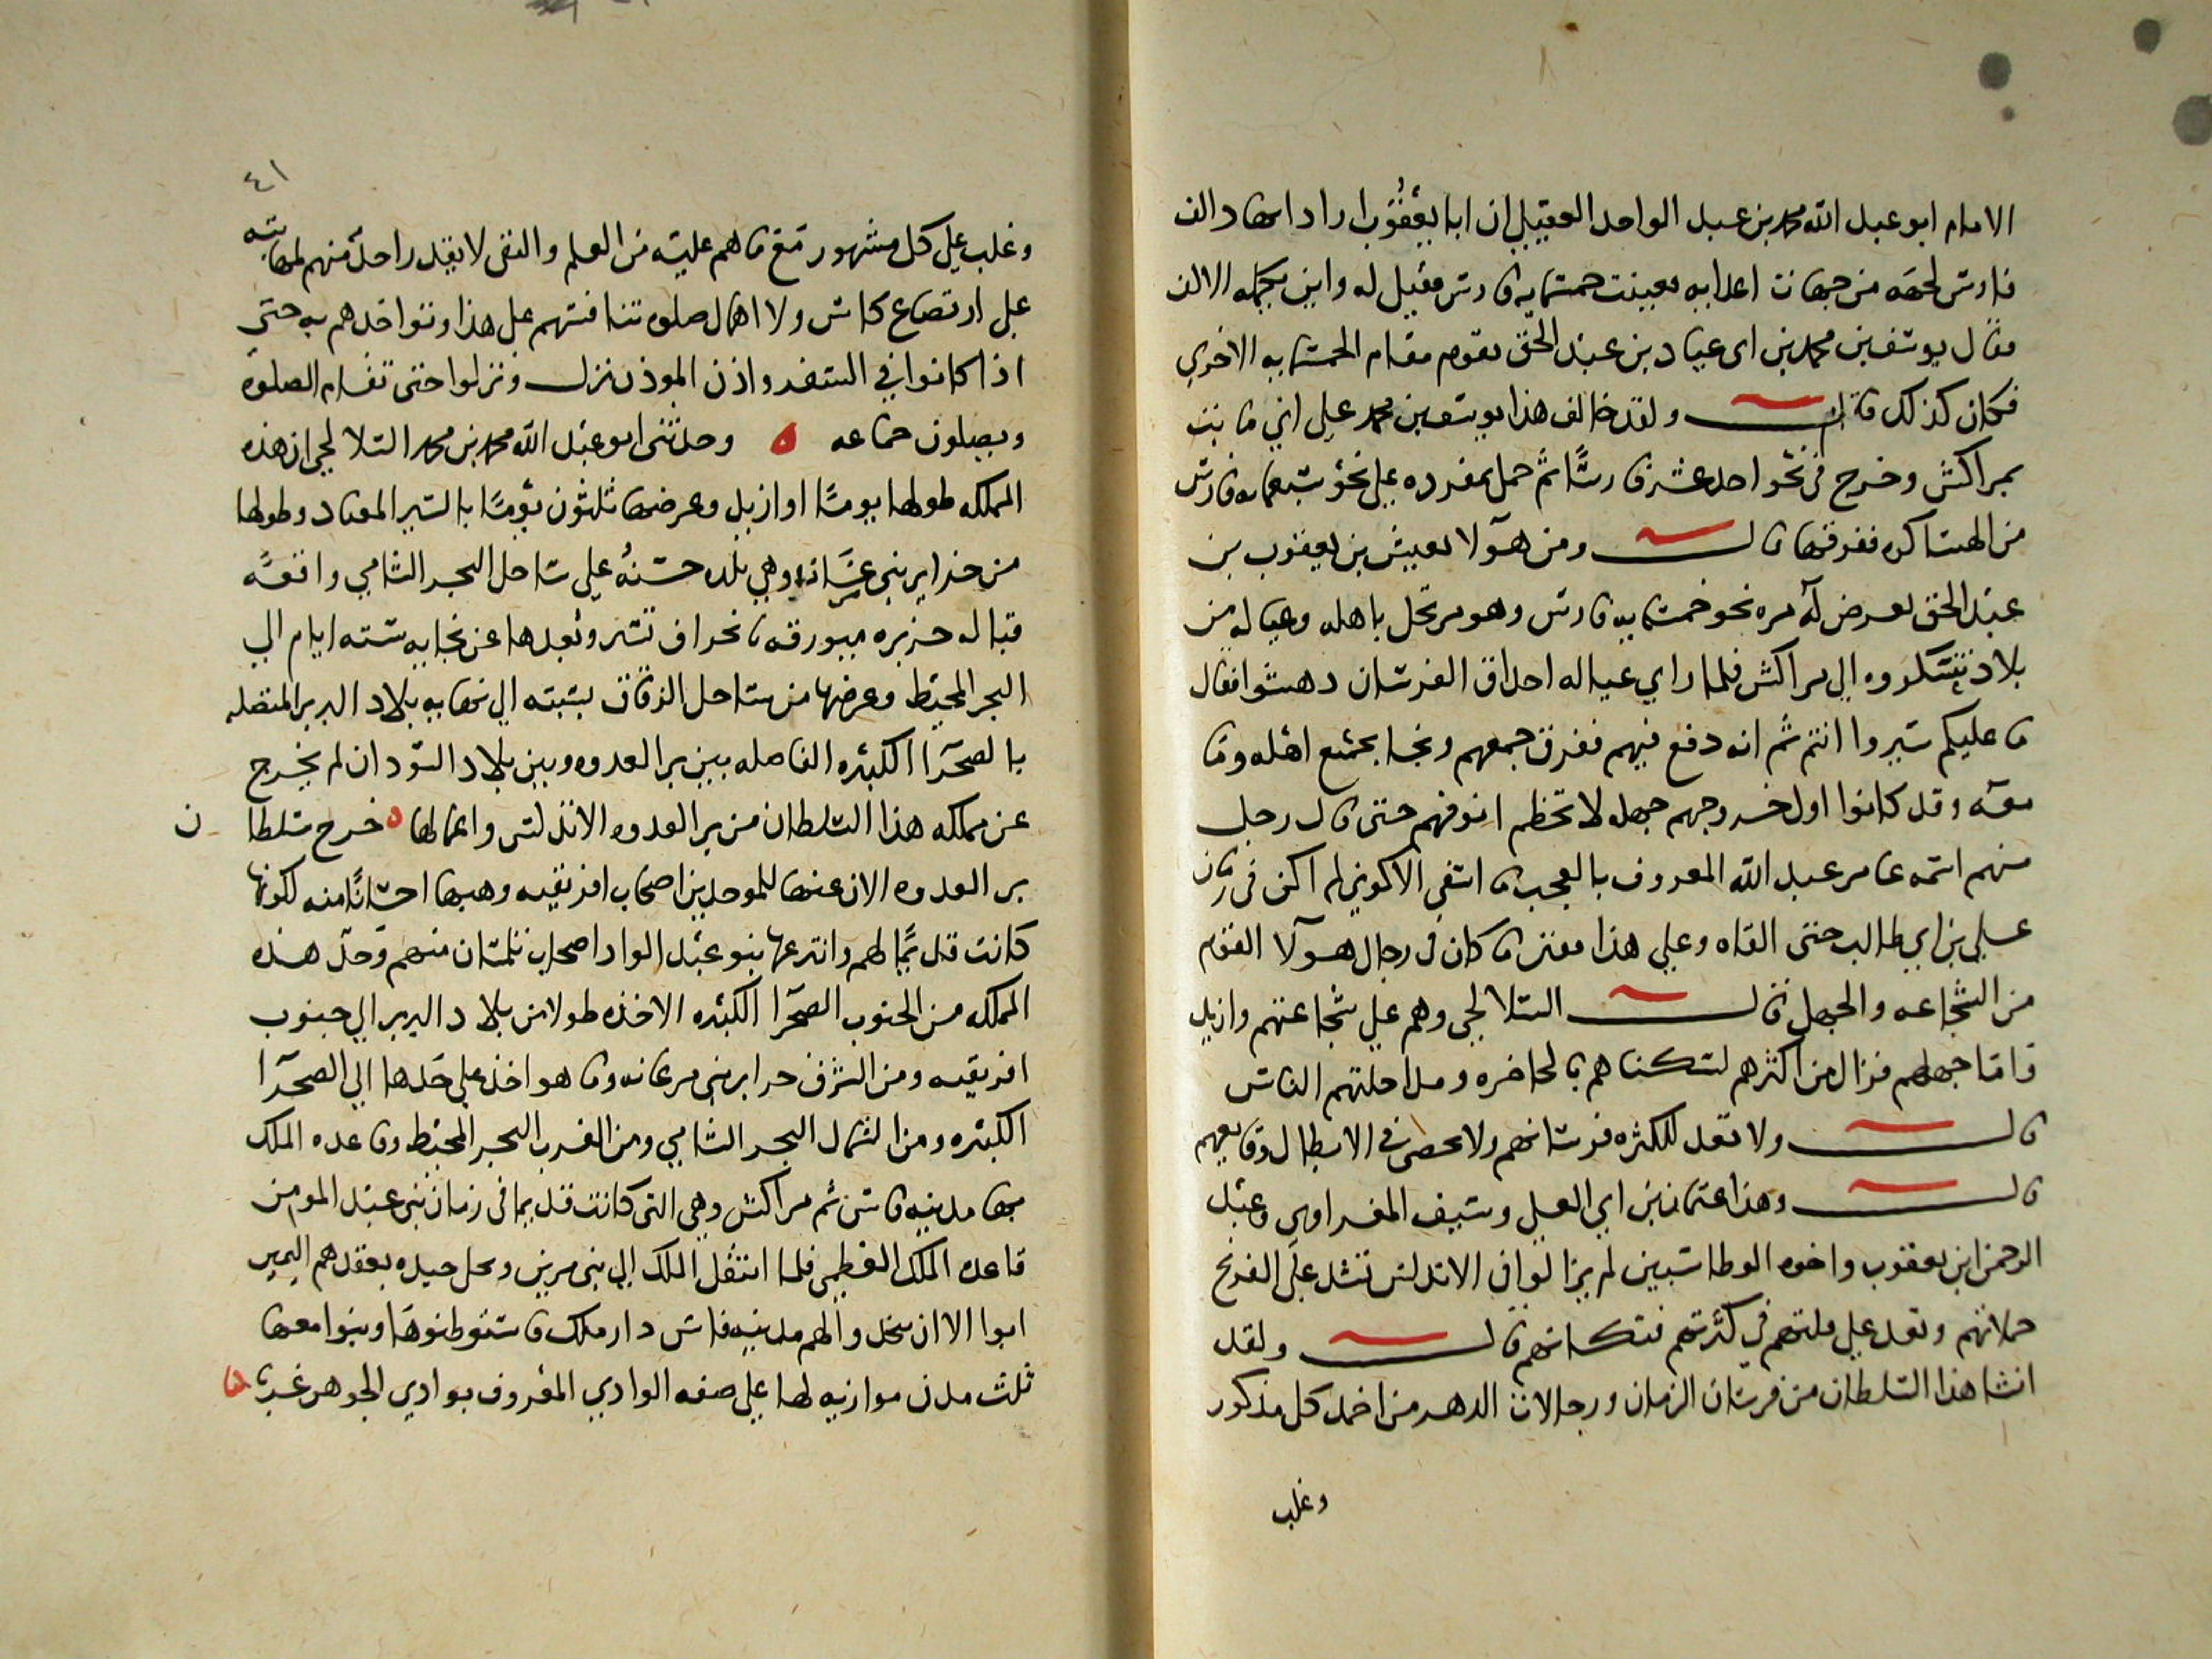 الامام ابو عبد الله محمد بن عبد الواحد العقيلي ان ابا يعقوب اراد امداد الف
فارس لجهة من جهات اعدايه فعينت خمسمايه فارس فقيل له واين تكمله الالف
فقال يوسف بن محمد بن ابى عياد بن عبد الحق يقوم مقام الخمسمايه الاخرى
فكان كذلك قال ولقد خالف هذا يوسف بن محمد على اني ثابت
بمراكش وخرج فى نحو احد عشر فارسًا ثم حمل بمفرده على نحو سبعمايه فارس
من الهساكره ففرقها قال ومن هولا يعيش بن يعقوب بن
عبد الحق تعرض له مره نحو خمسمايه فارس وهو مرتحل باهله وعياله من
بلاد هسكوره الى مراكش فلما راي عياله احداق الفرسان دهشوا فقال
ما عليكم سيروا انتم ثم انه دفع فيهم ففرق جمعهم ونجا بجميع اهله وما
معه وقد كانوا اول خروجهم جهله لا تخطم انوفهم حتى قال رجل
منهم اسمه عامر عبد الله المعروف بالعجب ما اسفى الا كونى لم اكن فى زمان
على بن ابي طالب حتى القاه وعلى هذا فقس ما كان فى رجال هولا القوم
من الشجاعه والجهل قال السلالجي وهم على شجاعتهم وازيد
واما جهلهم فزال من اكثرهم لسكناهم بالحاضره ومداخلتهم الناس
قال ولا تعد للكثره فرسانهم ولا تحصى فى الابطال وقايعهم
قال وهذا عثمان بن ابي العلى وسيف المغراوى وعبد
الرحمن ابن يعقوب واخوه الوطاسيين لم يزالوا فى الاندلس تشد على الفرنج
حملاتهم وتعد على قلتهم فى كثرتهم فتكاتهم قال ولقد
انشا هذا السلطان من فرسان الزمان ورجالات الدهر من اخمد كل مذكور
وغلب
٤١
وغلب على كل مشهور مع ما هم عليه من العلم والتقى لا يقدر احد منهم لمهابته
على ارتضاع كاس ولا اهمال صلوه تنافستهم على هذا وتواخذهم به حتى
اذا كانوا في السفر واذن الموذن نزل ونزلوا حتى تقام الصلوه
ويصلون جماعه ه وحدثنى ابو عبد الله محمد بن محمد السلالجي ان هذه
المملكه طولها يومًا او ازيد وعرضها ثلثون يومًا بالسير المعتاد وطولها
من جزاير بني مزغانه وهي بلده حسنه على ساحل البحر الشامي واقعه
قباله جزيره ميورقه بانحراف يسير وبعدها عن بجايه سته ايام الي
البحر المحيط وعرضها من ساحل الزقاق بسبته الي نهايه بلاد البربر المتصله
بالصحرا الكبيره الفاصله بين بر العدوه وبين بلاد السودان لم يخرج
عن مملكه هذا السلطان من بر العدوه الاندلس واعمالها ه خرج سلطان
بر العدوه الان عنها للموحدين اصحاب افريقيه وهبها احسانًا منه لكونها
كانت قديمًا لهم وانتزعها بنو عبد الواد اصحاب تلمسان منهم وحد هذه
المملكه من الجنوب الصحرا الكبيره الاخذه طولا من بلاد البربر الي جنوب
افريقيه ومن الشرق جزاير بني مزغانه وما هو اخذ على حدها الي الصحرا
الكبيره ومن الشمال البحر الشامي ومن الغرب البحر المحيط وقاعده الملك
بها مدينه فاس ثم مراكش وهي التى كانت قديما فى زمان بني عبد المومن
قاعده الملك العظمى فلما انتقل الملك الي بنى مرين وحل جيده بعقدهم اليمين
ابوا الا ان يتخذوا لهم مدينه فاس دار ملك فاستوطنوها وبنوا معها
ثلث مدن موازيه لها على ضفه الوادي المعروف بوادي الجوهر غربا ه